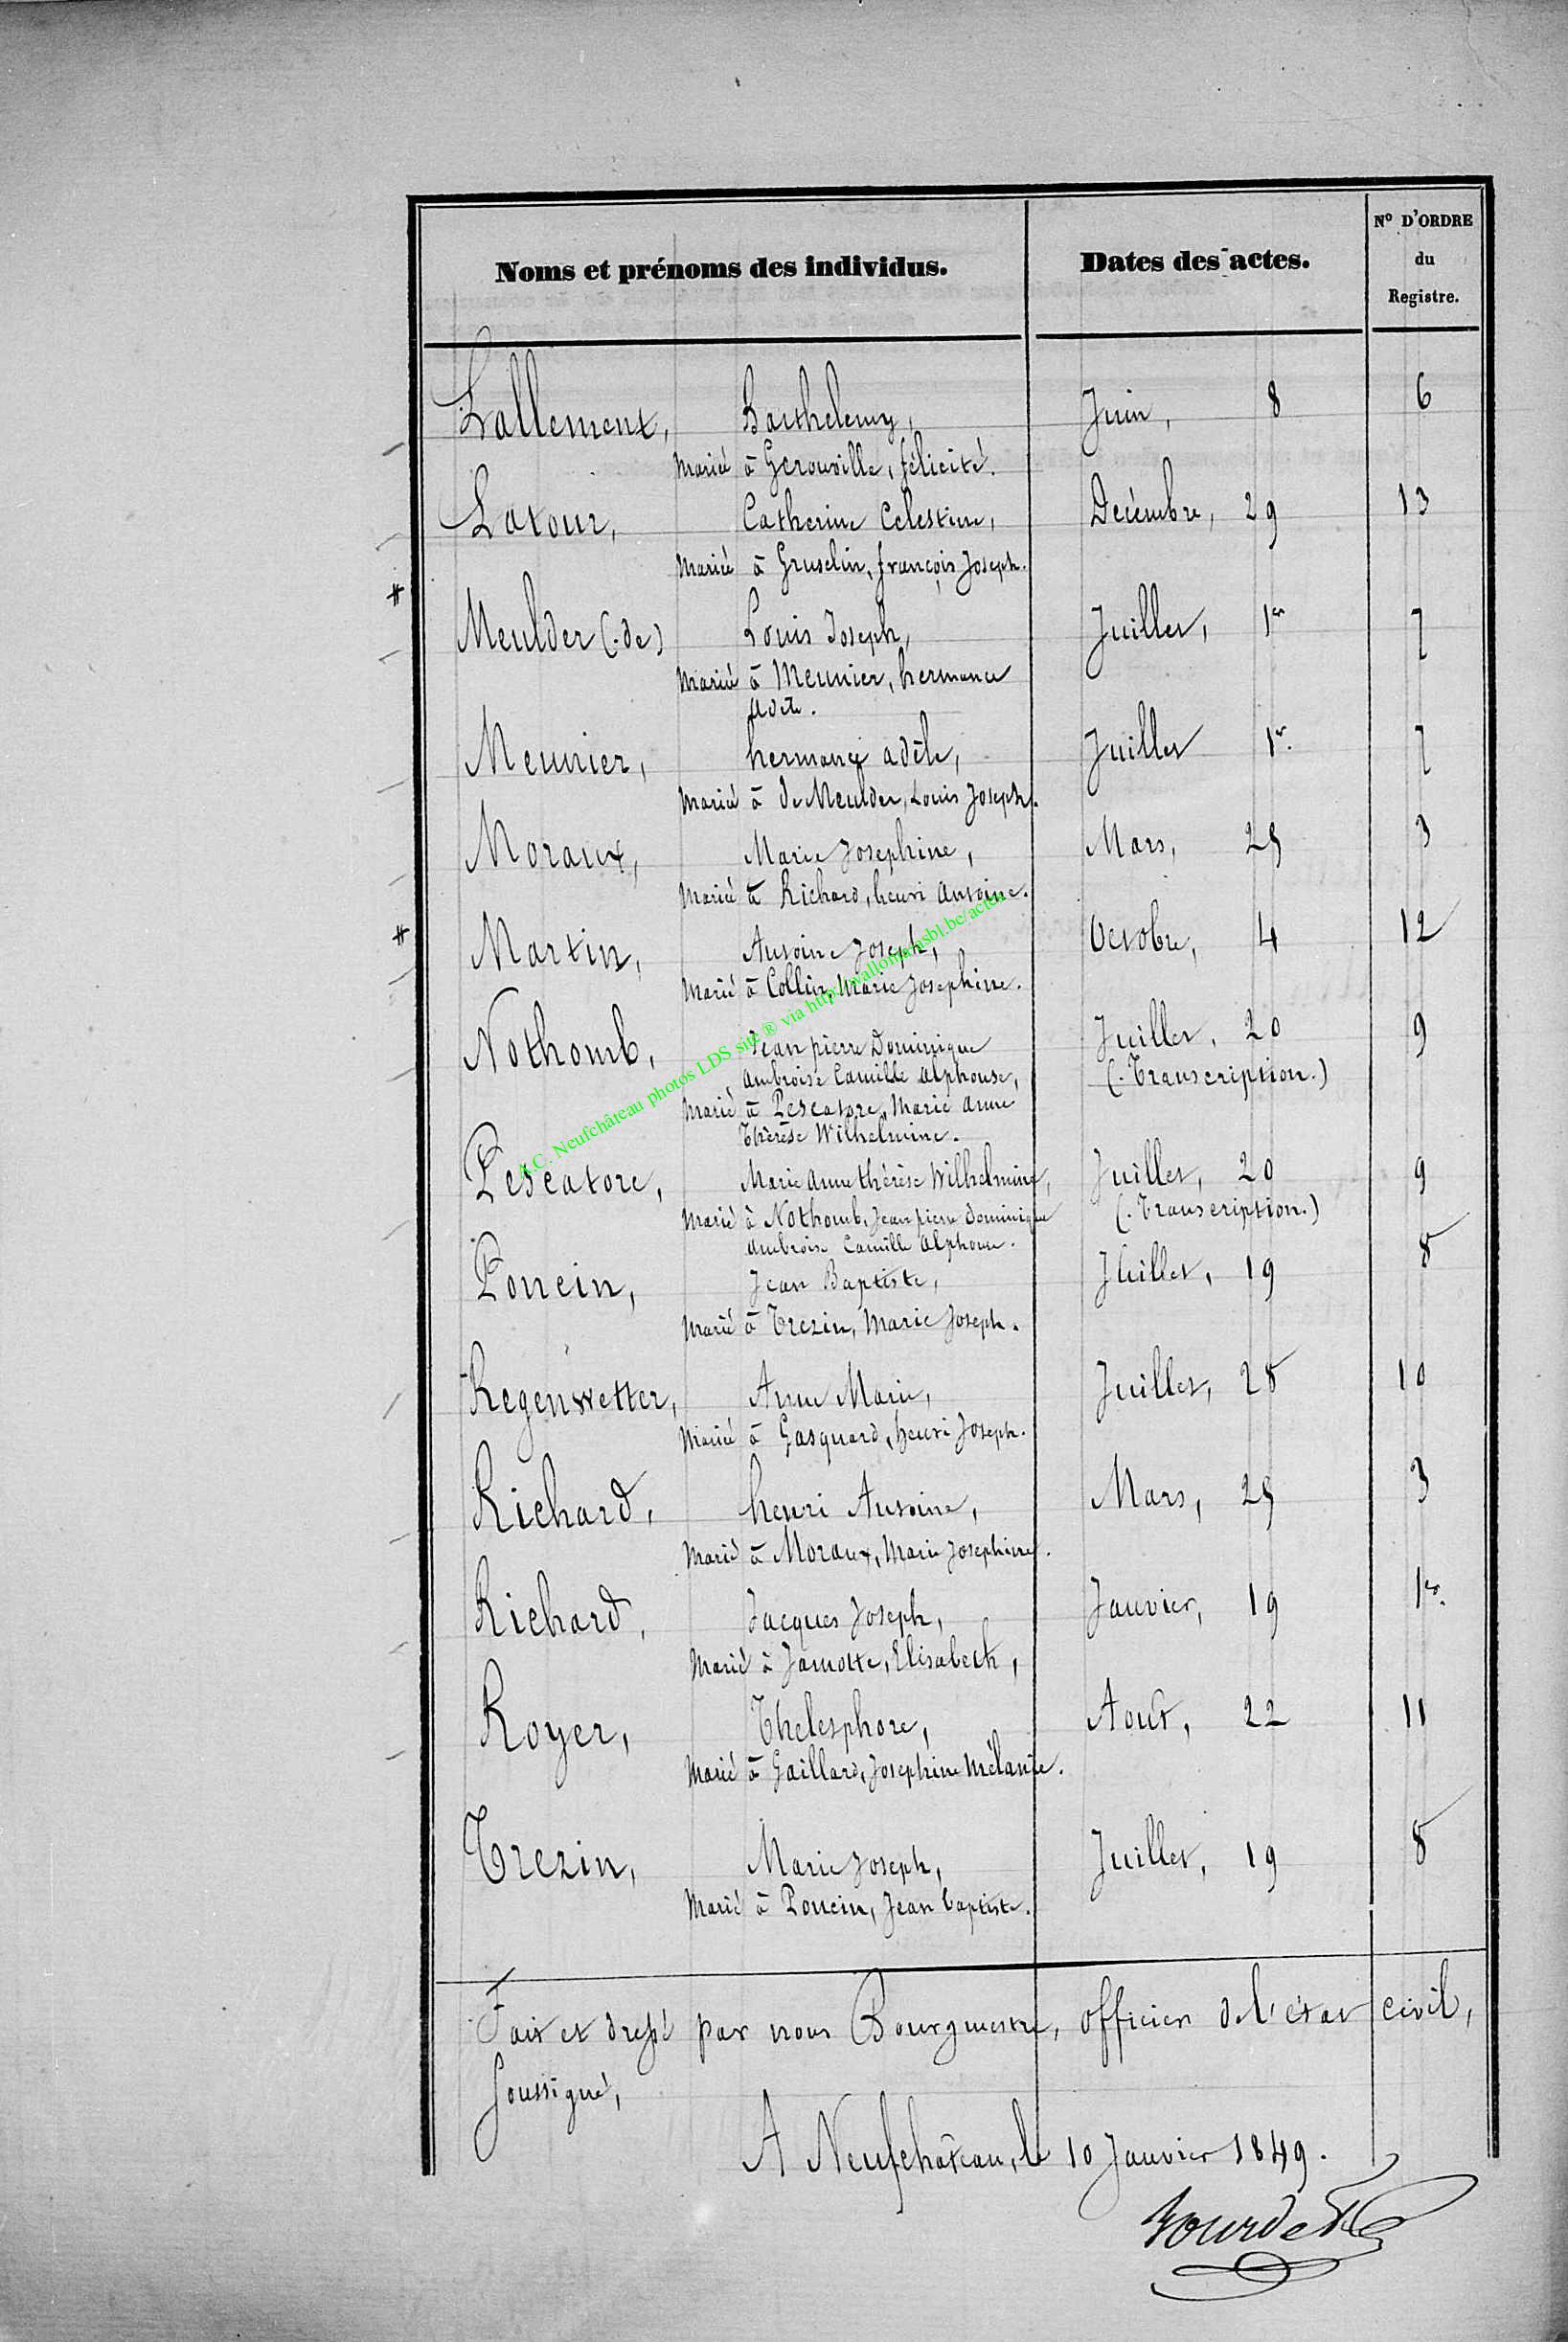 Noms et prénoms des individus. Dates des actes. N° D'ORDRE
du
Registre.
Lallement, Barthelemy, Juin, 8 6
Marié à Gerouville, félicité.
Latour, Catherine Celestine, Decémbre, 29 13
Marié à Gruselin, françois Joseph.
Meulder (de) Louis Joseph, Juillet, 1er 7
Marié à Meunier, hermance
Adèle.
Meunier, hermance adèle, Juillet 1er 7
Marié à de Meulder, Louis Joseph.
Moraux, Marie Josephine, Mars, 29 3
Marié à Richard, henri Antoine.
Martin, Antoine Joseph, Octobre, 4 12
Marié à Collin, Marie Josephine.
Nothomb, Jean pierre Dominique Juillet, 20 9
Ambroise Camille Alphonse, (Transcription.)
Marié à Pescatore, Marie Anne
Thérèse Wilhelmine.
Pescatore, Marie Anne thérèse Wilhelmine, Juillet, 20 9
Marié à Nothomb, Jean pierre Dominique (Transcription.)
Ambroise Camille Alphonse.
Poncin, Jean Baptiste, Juillet, 19 8
Marié à Trezin, Marie Joseph.
Regenwetter, Anne Marie, Juillet, 28 10
Marié à Gasquard, henri Joseph.
Richard, henri Antoine, Mars, 29 3
Marié à Moraux, Marie Josephine.
Richard, Jacques Joseph, Janvier, 19 1er.
Marié à Jamotte, Elisabeth,
Royer, Thelesphore, Aout, 22 11
Marié à Gaillard, Josephine Mélanie.
Trezin, Marie Joseph, Juillet, 19 8
Marié à Poncin, Jean baptiste.
Fait et dressé par nous Bourgmestre, officier de l'état civil,
Soussigné,
A Neufchâteau, le 10 Janvier 1849.
A.C. Neufchâteau photos LDS site ® via http://wallonia.asbl.be/actes